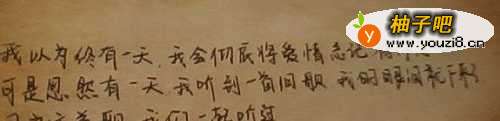 柚子吧
www.youzi8.cn
我以为终有一天,我会彻底将爱情忘记
可是忽然有一天 我听到一首旧歌 我的眼泪就下来
我们一起听过